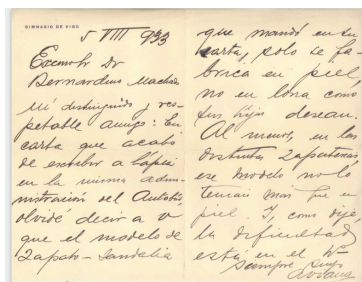 GIMNASIO DE VIGO
5 VIII 933
Excmo Sr Dr
Bernardino Machado
Mi distinguido y res-
petable amigo: En
carta que acabo
de escribir a
en la misma admi-
nistración del Autobús,
olvidé decir a V
que el modelo de
Zapato-Sandalia
que mandó en su
carta, solo se fa-
brica en piel,
no en lona como
sus hijos desean.
Al menos, en las
distintas Zapaterías
ese modelo no lo
tenían más que en
piel. Y, como dije,
la dificultad
está en el
Siempre suyo